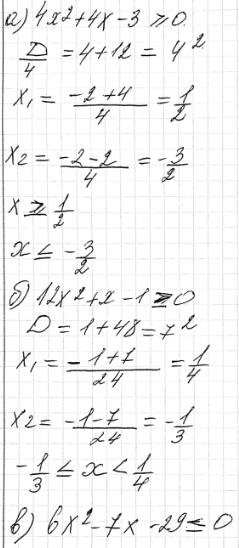 а) 4x²+4x-3 ≥ 0
D/4 = 4+12 = 4²
x₁ = (-2+4)/4 = 1/2
x₂ = (-2-2)/4 = -3/2
x ≥ 1/2
x ≤ -3/2
б) 12x²+x-1 ≥ 0
D = 1+48 = 7²
x₁ = (-1+7)/24 = 1/4
x₂ = (-1-7)/24 = -1/3
-1/3 ≤ x < 1/4
в) 6x²-7x-29 ≤ 0